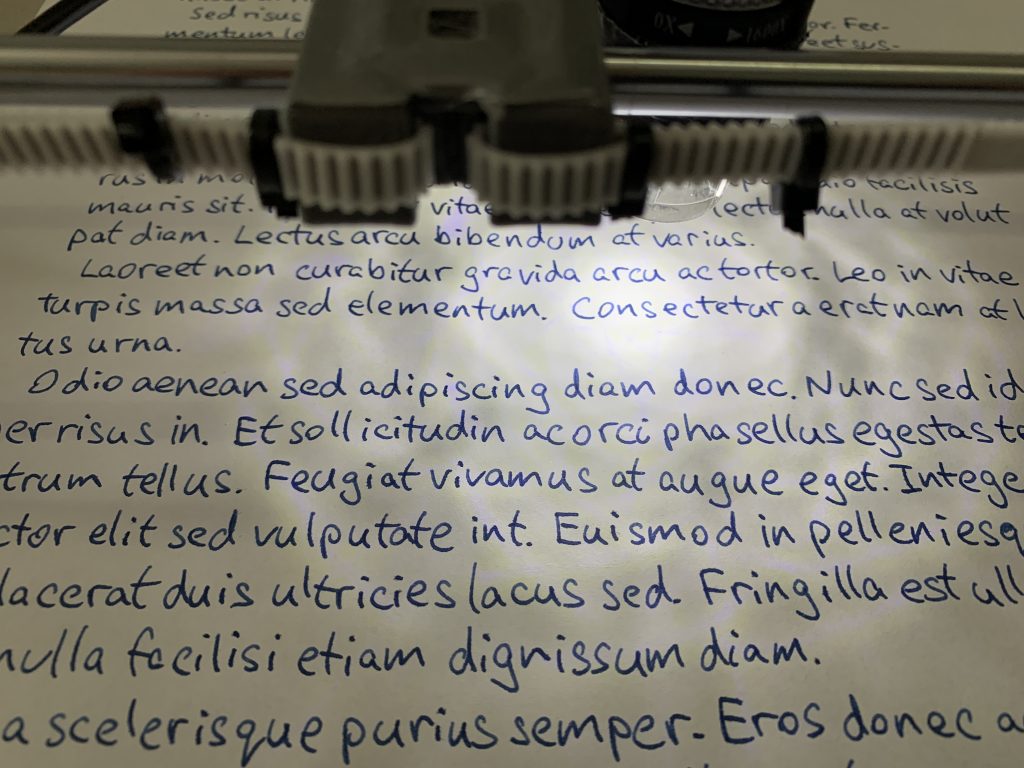 Sed risus
mentum
or. Fer-
eet sus-
facilisis
mauris sit. vitae lectu nulla at volut
pat diam. Lectus arcu bibendum at varius.
Laoreet non curabitur gravida arcu ac tortor. Leo in vitae
turpis massa sed elementum. Consectetur a erat nam at
tus urna.
Odio aenean sed adipiscing diam donec. Nunc sed id
er risus in. Et sollicitudin ac orci phasellus egestas te
trum tellus. Feugiat vivamus at augue eget. Intege
ctor elit sed vulputate int. Euismod in pelleniesq
lacerat duis ultricies lacus sed. Fringilla est ull
nulla facilisi etiam dignissum diam.
a scelerisque purius semper. Eros donec a